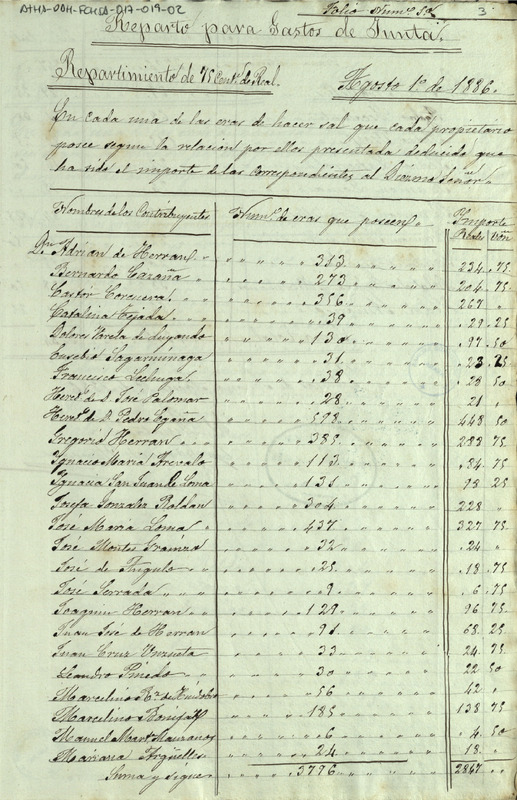 ATHA-DOH-FCHSA-017-019-02
Folio Num.º 50 3
Reparto para Gastos de Junta.
Repartimiento de 75 Cent.s de Real. Agosto 1.º de 1886.
En cada una de las eras de hacer sal que cada propietario
posee segun la relacion por ellos presentada deducido que
ha sido el importe de las correspondientes al Diezmo Señor.
Nombres de los Contribuyentes Num.º de eras que poseen. Importe
Reales Vón
Dn. Adrian de Herran 313 234 75
Bernardo Cazaña 273 204 75
Castór Corcuera 356 267 "
Catalina Tejada 39 29 25
Dolores Varela de Luyando 130 97 50
Eusebio Sagarminaga 31 23 25
Francisco Lechuga 38 28 50
Hered.s de D. José Palomar 28 21 "
Hered.s de D. Pedro Egaña 598 448 50
Gregorio Herran 385 288 75
Ignacio Maria Arevalo 113 84 75
Ignacia San Juan de Loma 131 98 25
Josefa Gonzalez Roldan 304 228 "
José Maria Loma 437 327 75
José Montes 32 24 "
José de Angulo 25 18 75
José Serrada 9 6 75
Joaquin Herran 129 96 75
Juan José de Herran 91 68 25
Juan Cruz Unzueta 33 24 75
Leandro Pinedo 30 22 50
Marcelino R.z de 56 42 "
Marcelino 185 138 75
Manuel Mart. Manzanos 6 4 50
Mariana Argüelles 24 18 "
Suma y sigue 3796 2847 "